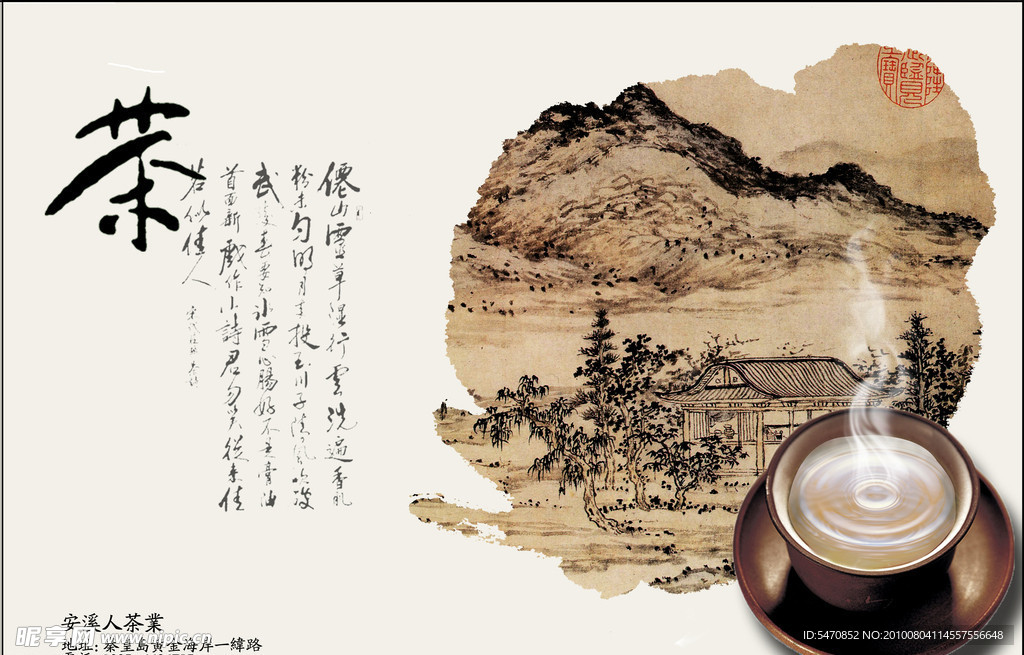 茶
僊山靈草濕行雲洗遍香肌
粉未勻明月来投玉川子清風吹破
武林春要知冰雪心腸好不是膏油
首面新戲作小詩君勿笑從来佳
茗似佳人
安溪人茶業
地址: 秦皇島黄金海岸一緯路
昵享网 www.nipic.cn
ID:5470852 NO:20100804114557556648